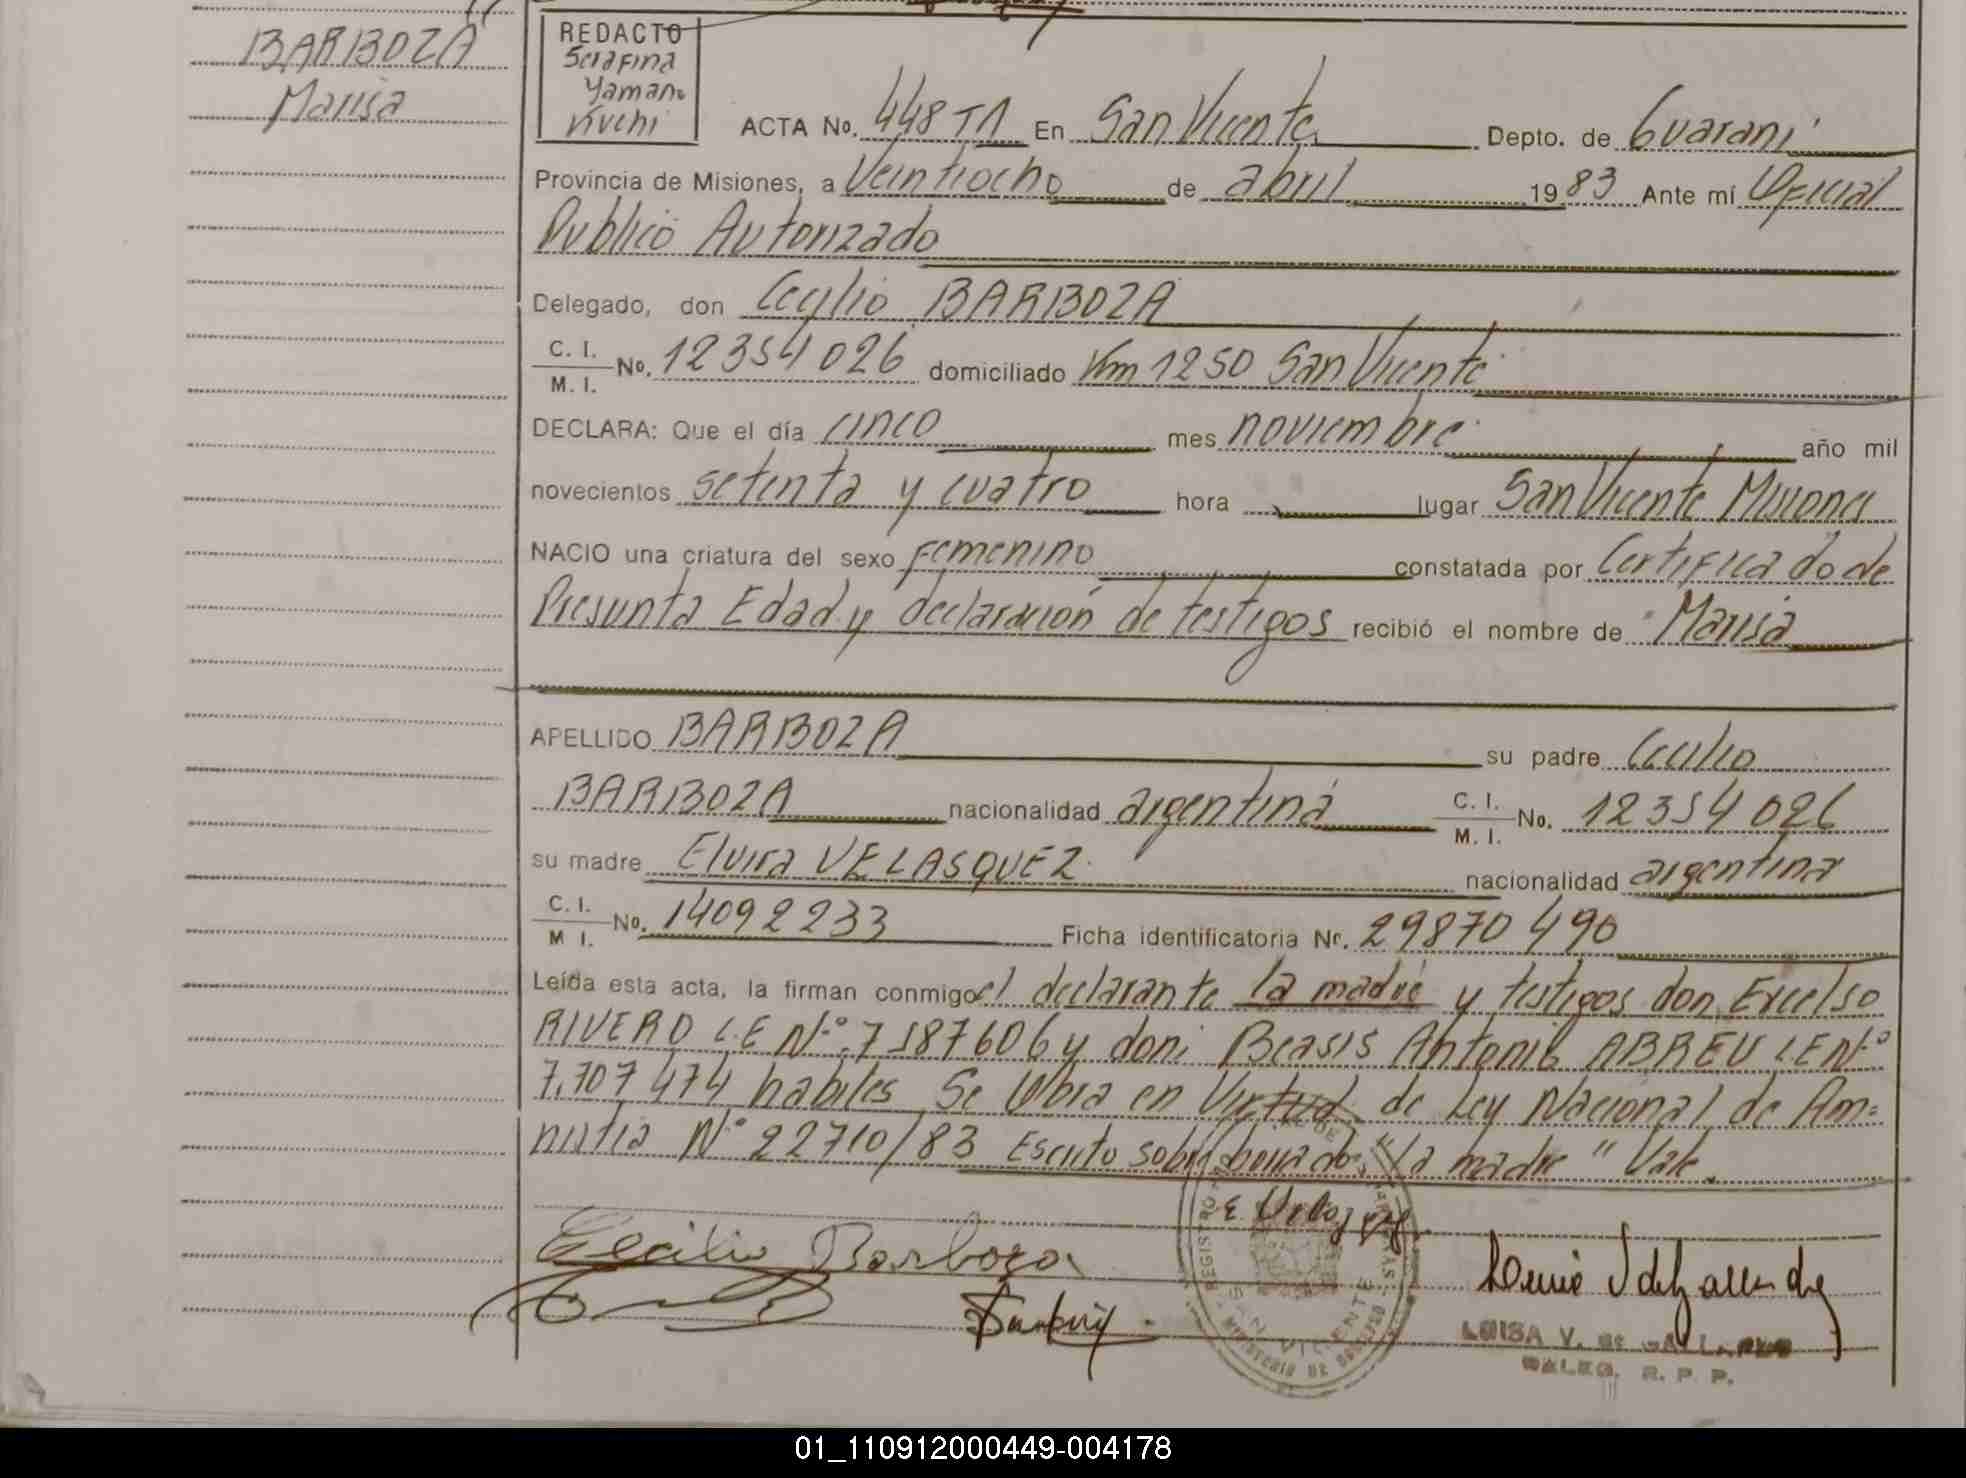 BARBOZA
Marisa
REDACTO
Serafina
Yaman
Kvchi
ACTA No. 448 T1 En San Vicente Depto. de Guaraní
Provincia de Misiones, a Veintiocho de abril 1983 Ante mí Oficial
Publico Autorizado
Delegado, don Cecilio BARBOZA
C. I. / M. I. No. 12354026 domiciliado Km 1250 San Vicente
DECLARA: Que el día cinco mes noviembre año mil
novecientos setenta y cuatro hora lugar San Vicente Misiones
NACIO una criatura del sexo Femenino constatada por Certificado de
Presunta Edad y declaración de testigos recibió el nombre de Marisa
APELLIDO BARBOZA su padre Cecilio
BARBOZA nacionalidad argentina C. I. / M. I. No. 12354026
su madre Elvira VELASQUEZ nacionalidad argentina
C. I. / M I. No. 14092233 Ficha identificatoria Nr. 29870490
Leída esta acta, la firman conmigo el declarante la madre y testigos don Excelso
RIVERO L.E Nº 7587606 y don Antonio ABREU L.E Nº
7.707 474 habiles Se labra en Virtud de Ley Nacional de Am=
nistia Nº 22710/83 Escrito sobre borrado: "la madre" Vale.
E Velazquez
Cecilio Barboza
REGISTRO
SAN VICENTE
LUISA V. de GALLARDO
DALEG. R. P. P.
01_110912000449-004178